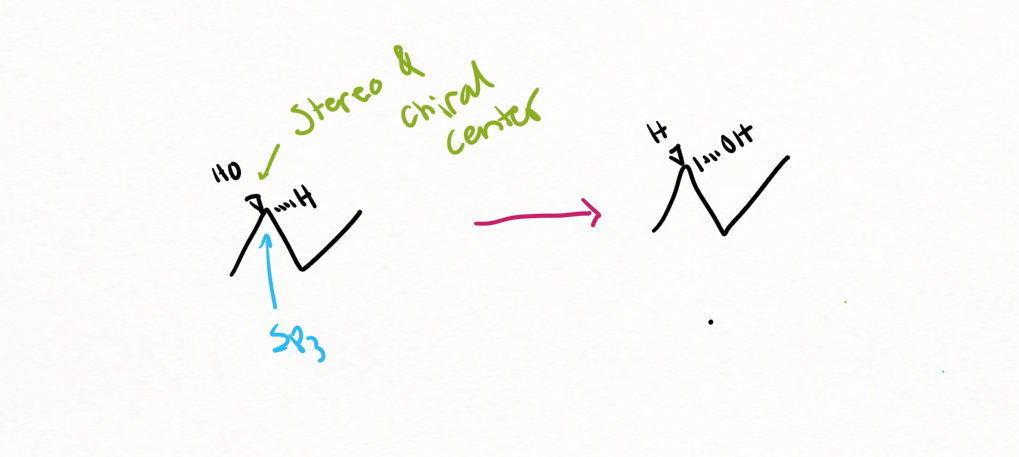 Stereo &
chiral
center
HO
H
H
OH
SP3